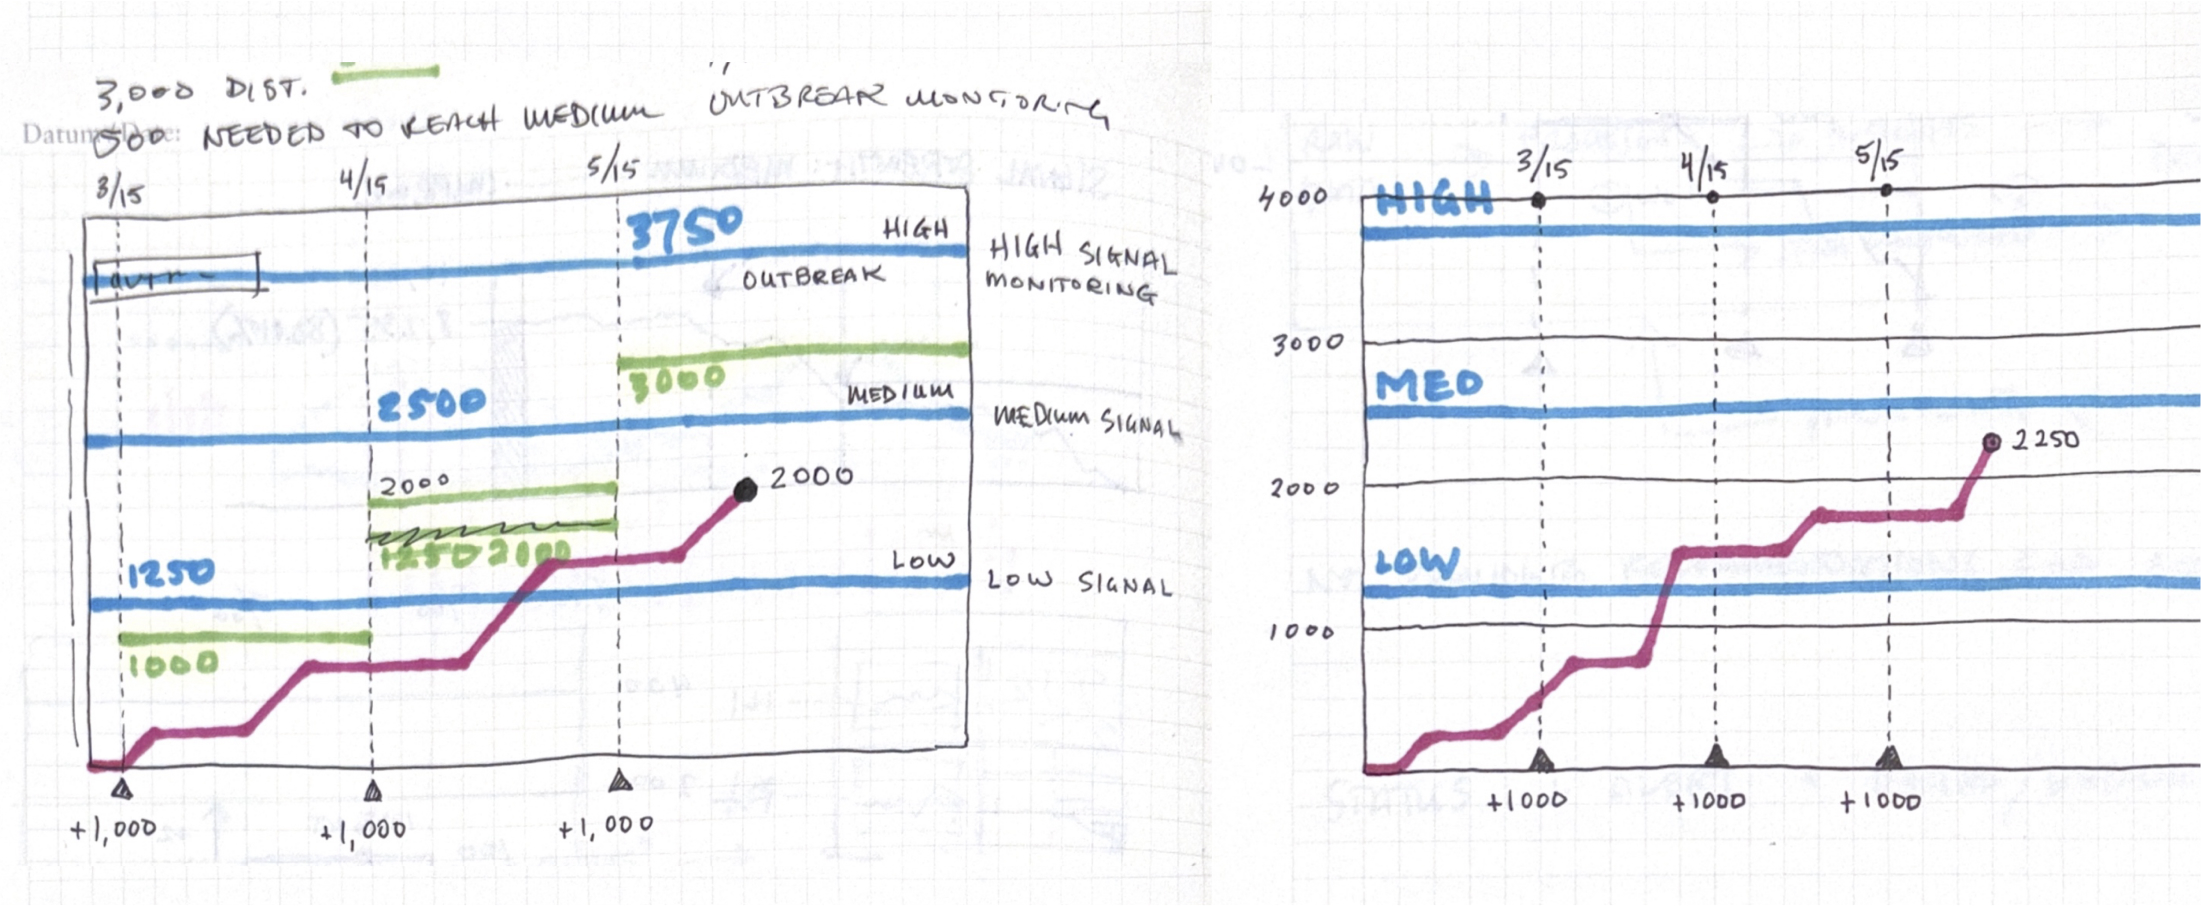 3,000 DIST.
Datum/Date:
500 NEEDED TO REACH MEDIUM OUTBREAK MONITORING
3/15
4/15
5/15
3750
HIGH
OUTBREAK
HIGH SIGNAL
MONITORING
3000
2500
MEDIUM
MEDIUM SIGNAL
2000
2000
1250 2000
1250
LOW
LOW SIGNAL
1000
+1,000
+1,000
+1,000
3/15
4/15
5/15
4000
HIGH
3000
MED
2250
2000
LOW
1000
+1000
+1000
+1000